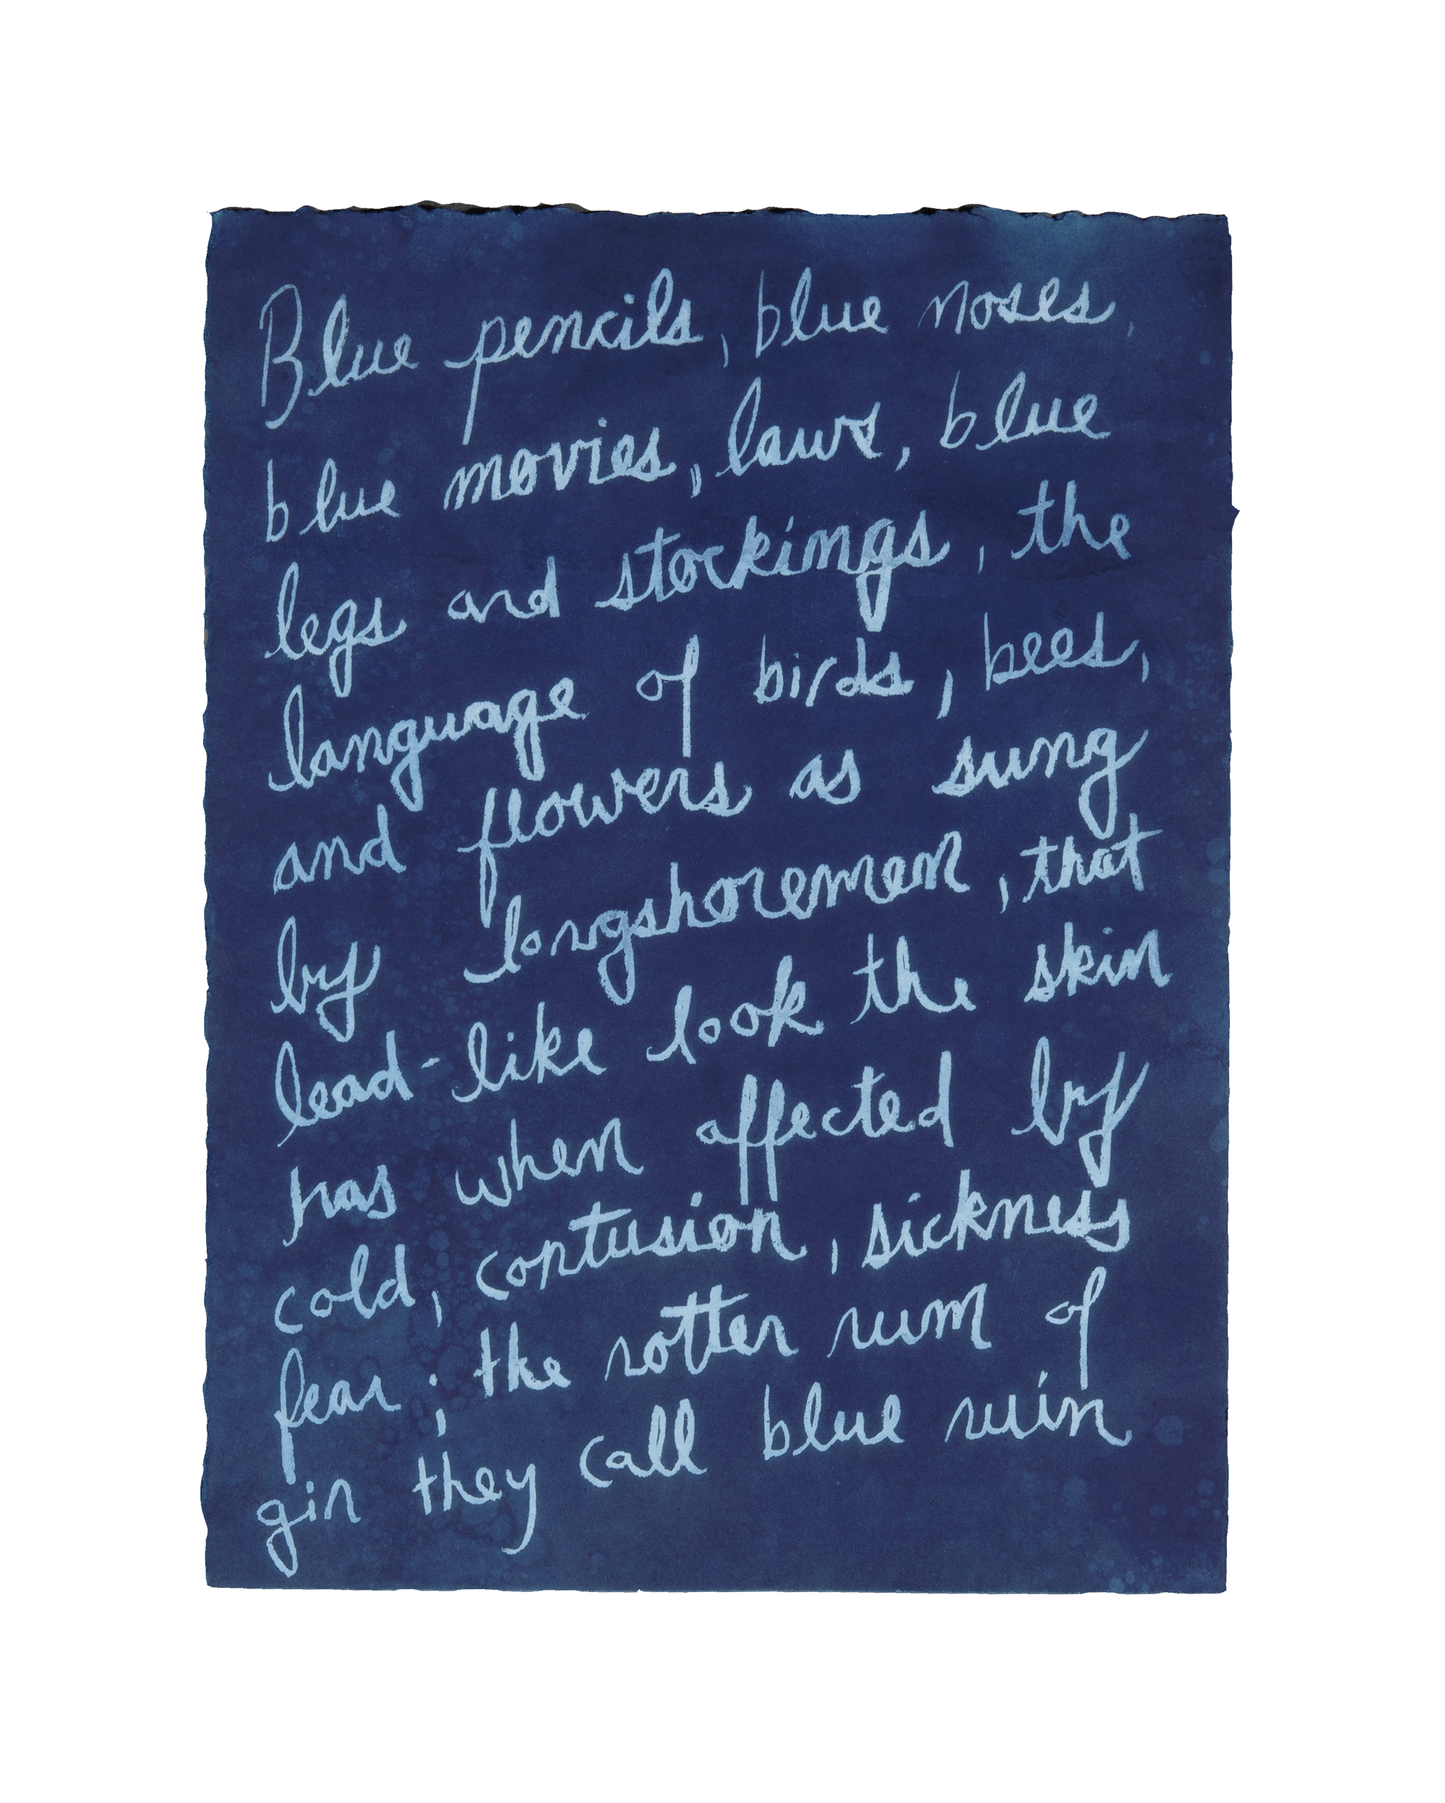 Blue pencils, blue noses,
blue movies, laws, blue
legs and stockings, the
language of birds, bees,
and flowers as sung
by longshoremen, that
lead-like look the skin
has when affected by
cold, contusion, sickness
fear; the rotter rum of
gin they call blue ruin